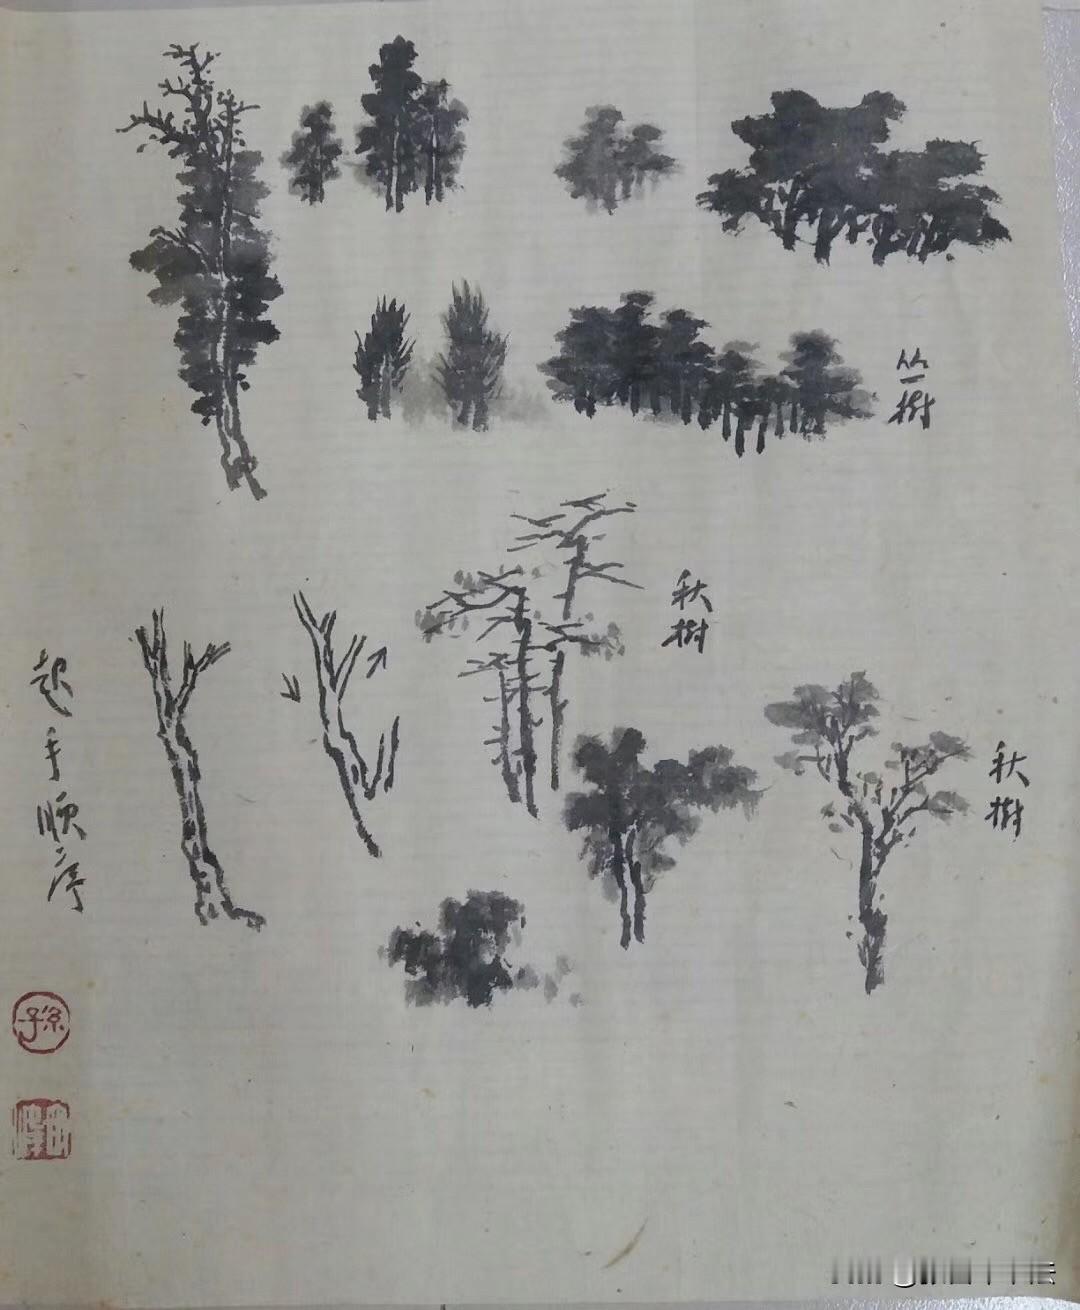 丛樹
秋樹
秋樹
起手順序
孫